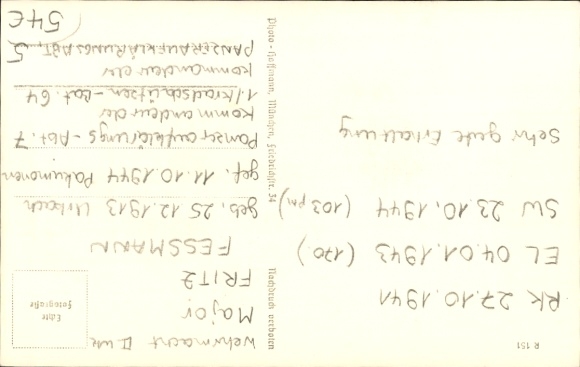 R 151
Echte
Fotografie
Wehrmacht II WK
Major
FRITZ
FESSMANN
geb. 25.12.1913 Urbach
gef. 11.10.1944 Pakumonen
Panzeraufklärungs-Abt. 7
Kommandeur der
1./Kradschützen-Bat. 64
Kommandeur der
PANZERAUFKLÄRUNGSABT. 5
54€
RK 27.10.1941
EL 04.01.1943 (170)
SW 23.10.1944 (103 pm)
Sehr gute Erhaltung
Photo-Hoffmann, München, Friedrichstr. 34
Nachdruck verboten